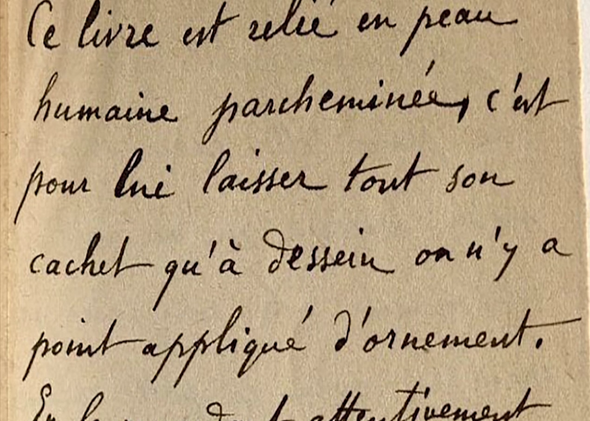 Ce livre est relié en peau
humaine parcheminée, c'est
pour lui laisser tout son
cachet qu'à dessein on n'y a
point appliqué d'ornement.
attentivement